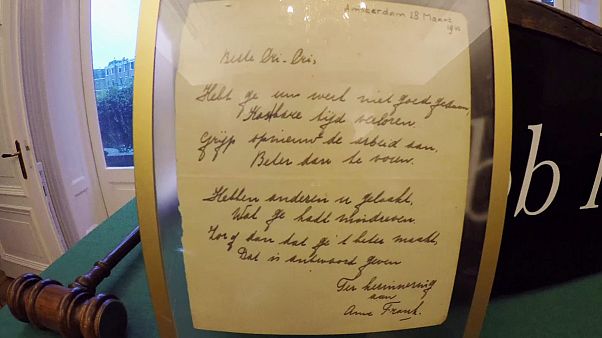 Amsterdam 28 Maart
Beste Cri-Cri,
Hebt ge uw werk niet goed gedaan,
Kostbare tijd verloren
Grijp opnieuw de arbeid aan,
Beter dan te voren.
Hebben anderen u gelaakt,
Wat ge hadt misdreven,
Zorg dan dat ge 't beter maakt,
Dat is antwoord geven
Ter herinnering
aan
Anne Frank.